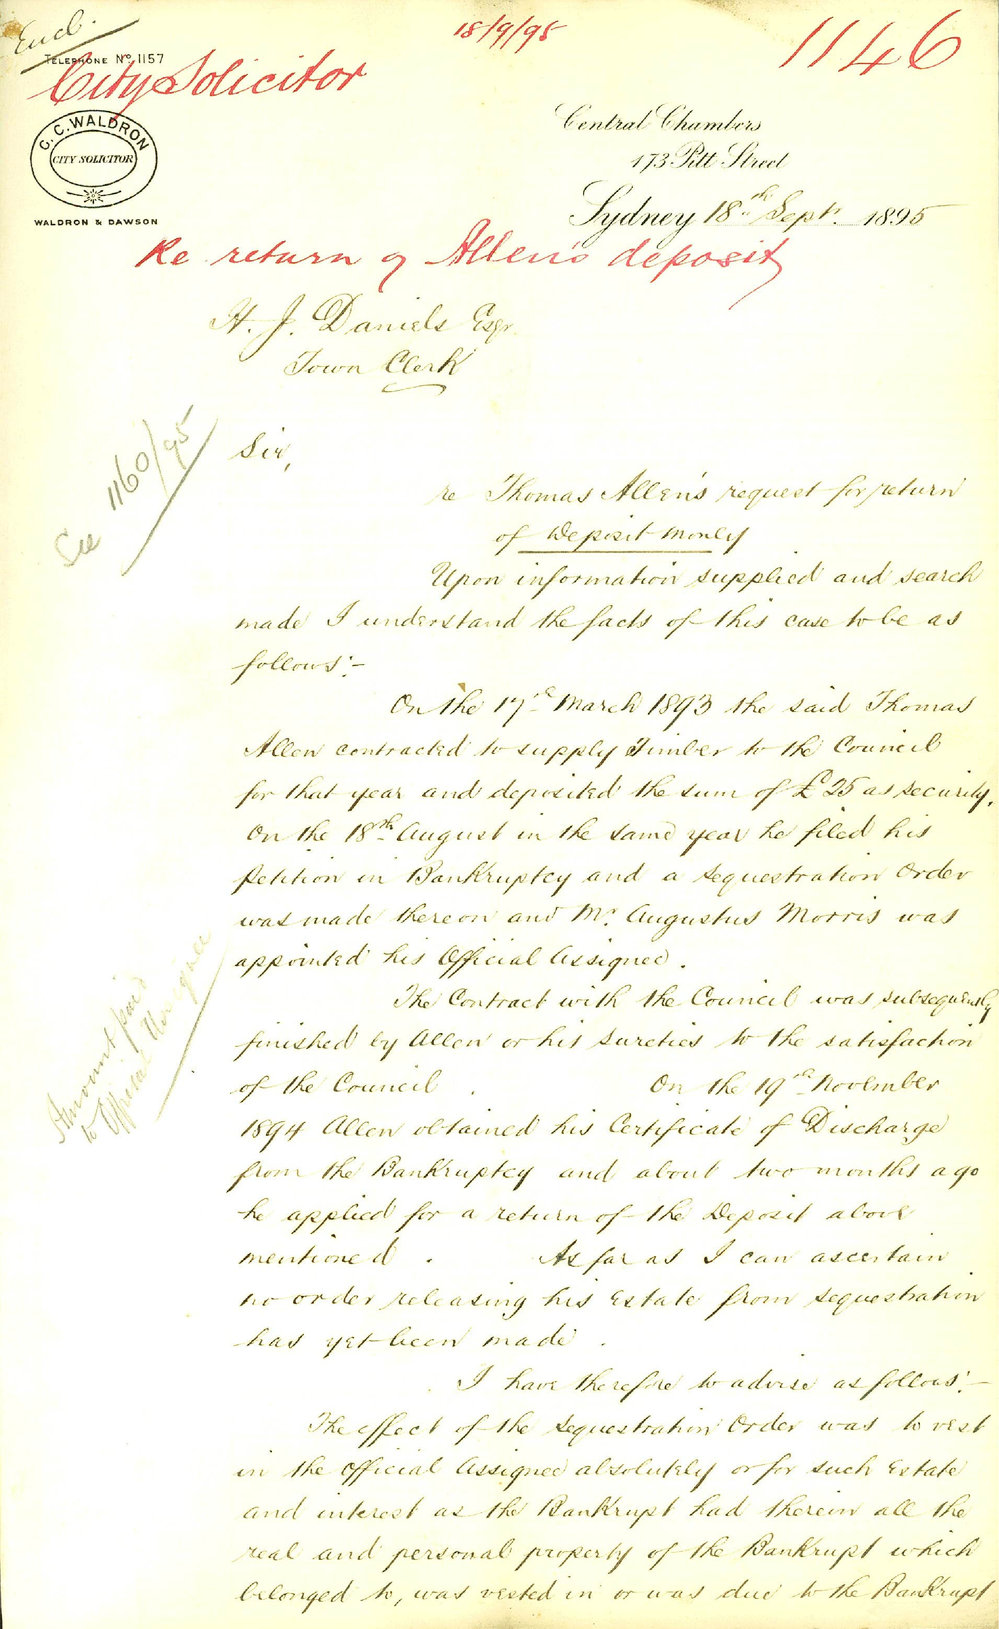 Encl.
18/9/95
1146
TELEPHONE No. 1157
City Solicitor
C. C. WALDRON
CITY SOLICITOR
WALDRON & DAWSON
Central Chambers
173 Pitt Street
Sydney 18th Sept. 1895
Re return of Allen's deposit
H. J. Daniels Esqr.
Town Clerk
See 1160/95
Sir,
re Thomas Allen's request for return
of Deposit money
Upon information supplied and search
made I understand the facts of this case to be as
follows:-
On the 17th March 1893 the said Thomas
Allen contracted to supply Timber to the Council
for that year and deposited the sum of £25 as security.
On the 18th August in the same year he filed his
Petition in Bankruptcy and a Sequestration Order
was made thereon and Mr. Augustus Morris was
appointed his Official Assignee.
The Contract with the Council was subsequently
finished by Allen or his sureties to the satisfaction
of the Council. On the 19th November
1894 Allen obtained his Certificate of Discharge
from the Bankruptcy and about two months ago
he applied for a return of the Deposit above
mentioned. As far as I can ascertain
no order releasing his Estate from sequestration
has yet been made.
Amount paid
to Official Assignee
I have therefore to advise as follows:-
The effect of the Sequestration Order was to vest
in the Official Assignee absolutely or for such Estate
and interest as the Bankrupt had therein all the
real and personal property of the Bankrupt which
belonged to, was vested in or was due to the Bankrupt